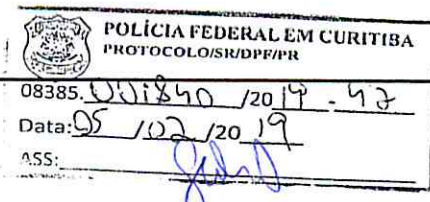 POLÍCIA FEDERAL EM CURITIBA
PROTOCOLO/SR/DPF/PR
08385.001840 /2019 - 47
Data: 05 / 02 /2019
ASS: